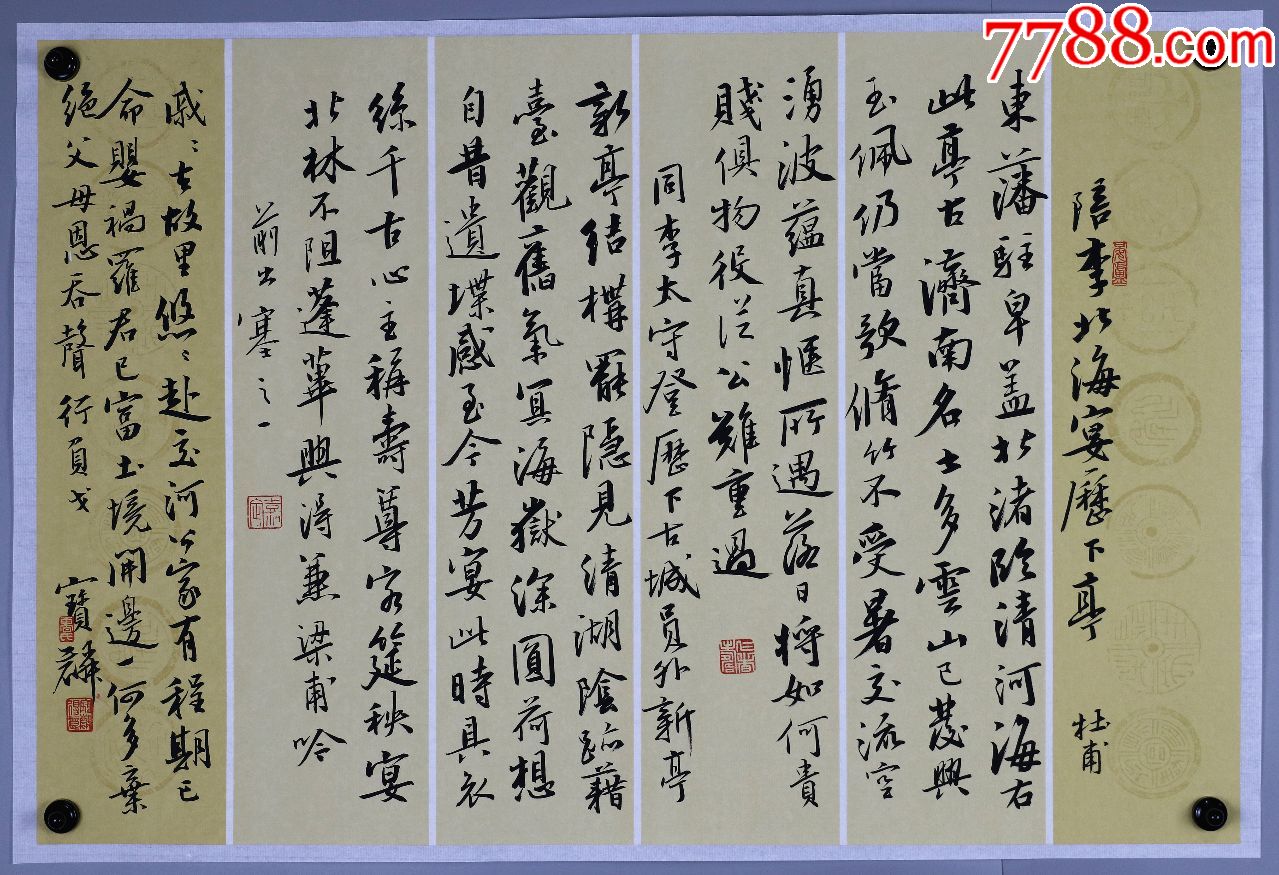 7788.com
陪李北海宴歷下亭 杜甫
東藩駐皁蓋北渚臨清河海右
此亭古濟南名士多雲山已發興
玉佩仍當歌脩竹不受暑交流空
湧波蘊真愜所遇落日將如何貴
賤俱物役從公難重過
同李太守登歷下古城員外新亭
新亭結構罷隱見清湖陰跡藉
臺觀舊氣冥海嶽深圓荷想
自昔遺堞感至今芳宴此時具哀
絲千古心主稱壽尊客筵秩宴
北林不阻蓬蓽興得兼梁甫吟
前出塞之一
戚〻去故里悠〻赴交河公家有程期亡
命嬰禍羅君已富土境開邊一何多棄
絕父母恩吞聲行負戈 寶麟